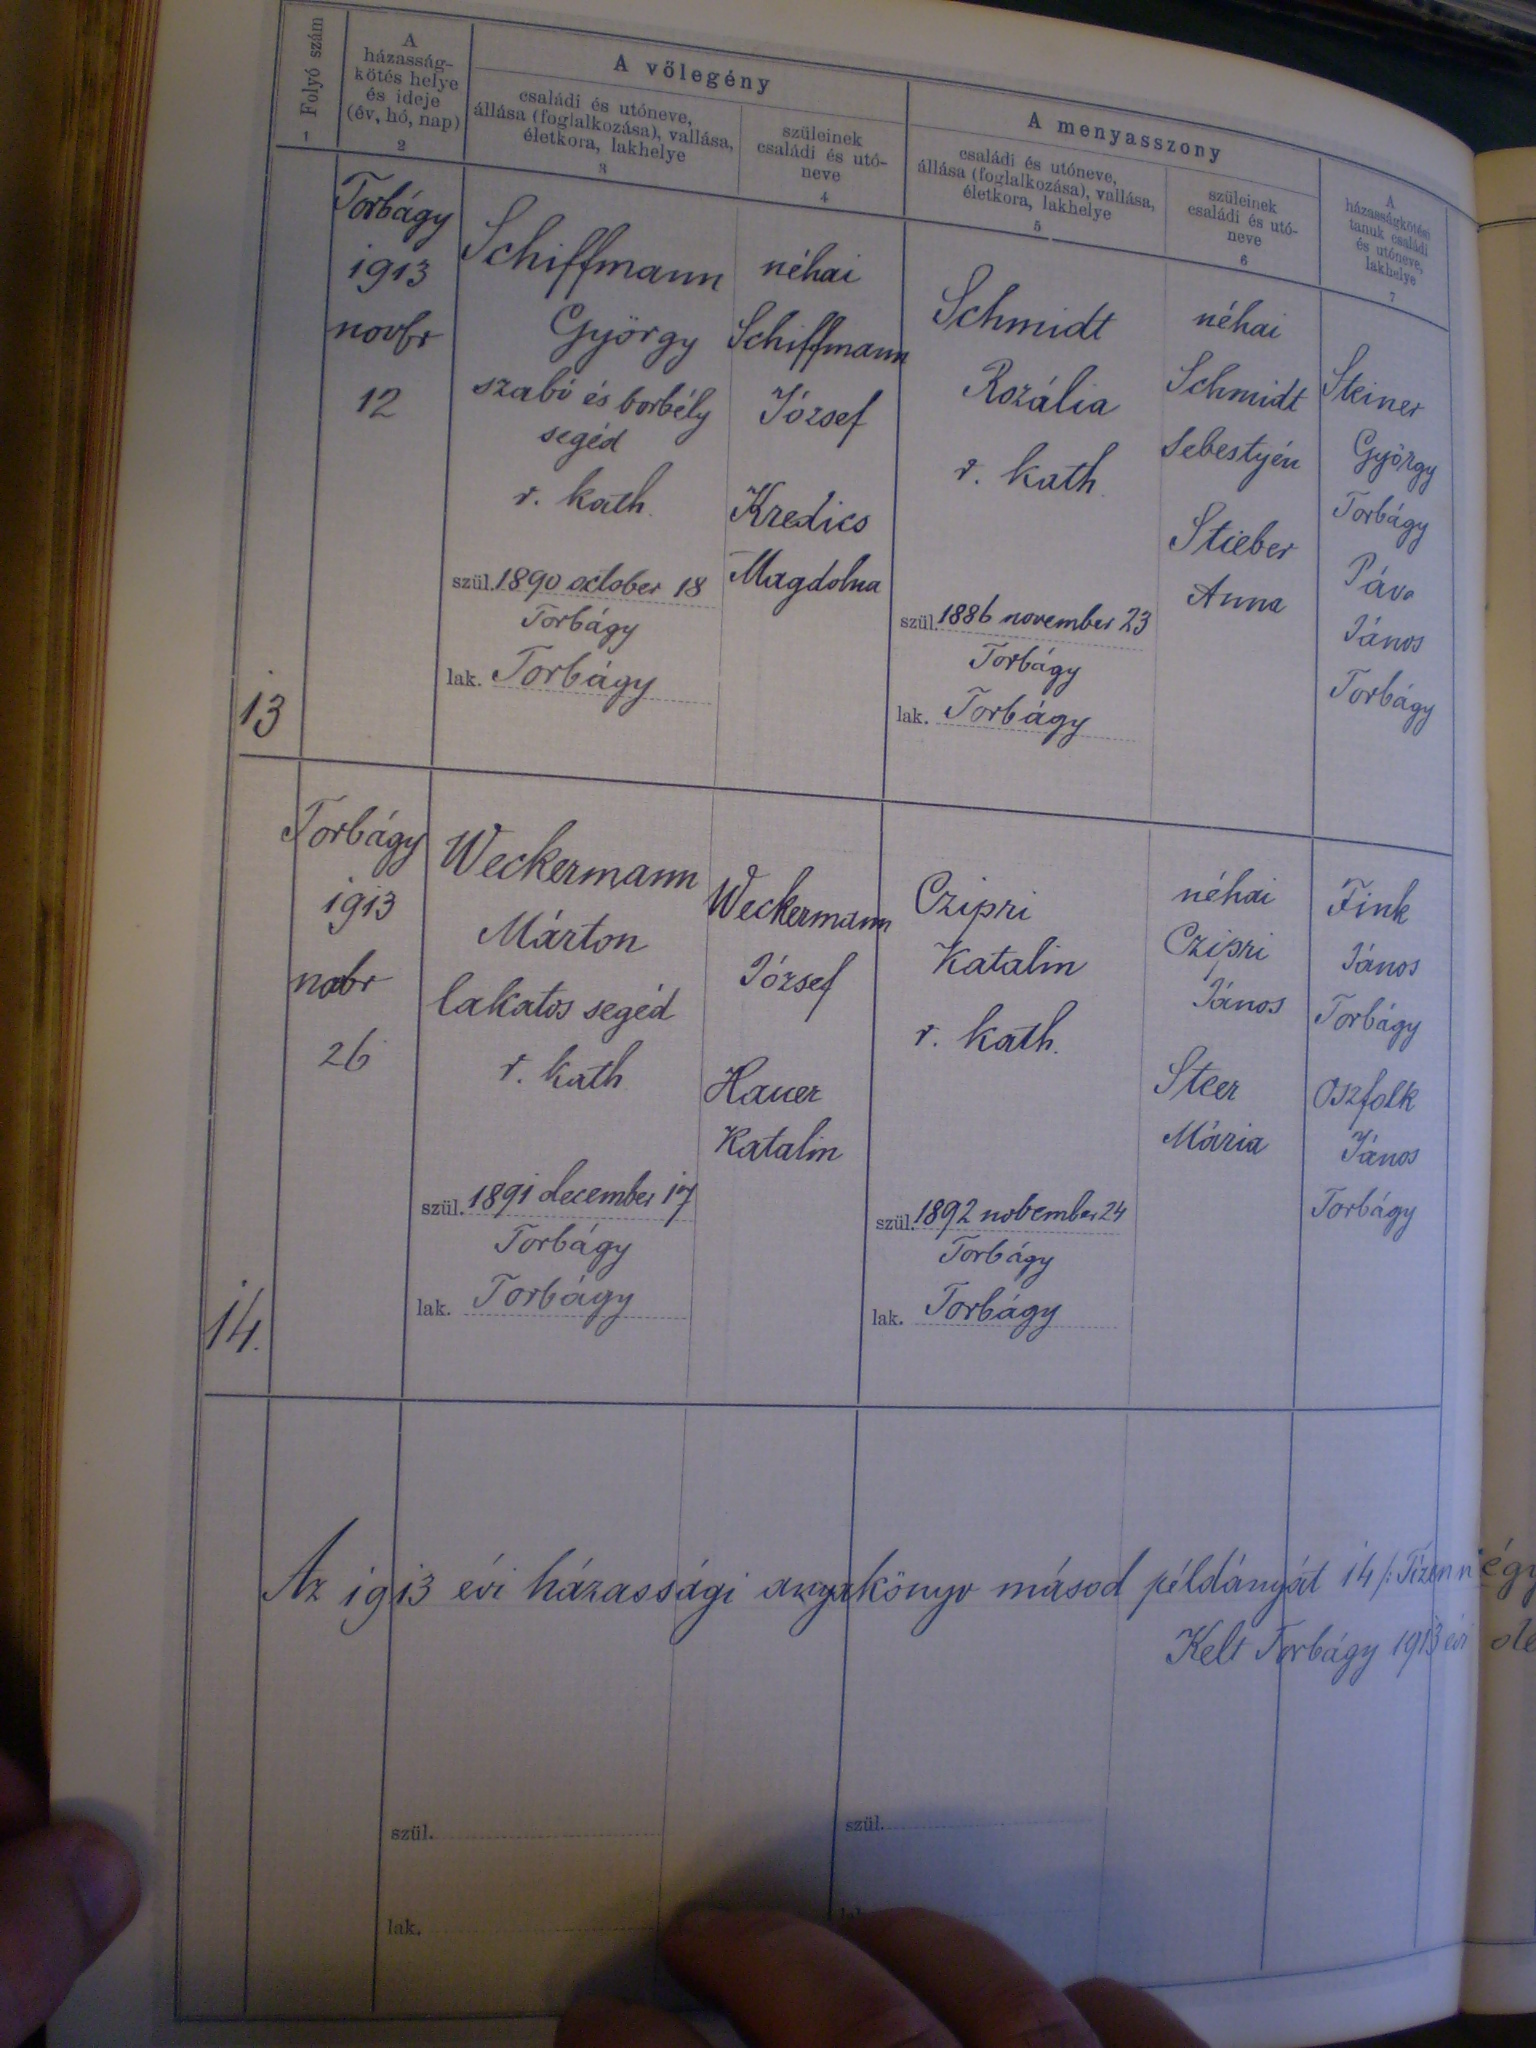 Folyó szám
1
A
házasság-
kötés helye
és ideje
(év, hó, nap)
2
A vőlegény
családi és utóneve,
állása (foglalkozása), vallása,
életkora, lakhelye
3
szüleinek
családi és utó-
neve
4
A menyasszony
családi és utóneve,
állása (foglalkozása), vallása,
életkora, lakhelye
5
szüleinek
családi és utó-
neve
6
A
házasságkötési
tanuk családi
és utóneve,
lakhelye
7
13
Torbágy
1913
novbr
12
Schiffmann
György
szabó és borbély
segéd
r. kath.
szül. 1890 october 18
Torbágy
lak. Torbágy
néhai
Schiffmann
József
Kredics
Magdolna
Schmidt
Rozália
r. kath.
szül. 1886 november 23
Torbágy
lak. Torbágy
néhai
Schmidt
Sebestyén
Stieber
Anna
Steiner
György
Torbágy
János
Torbágy
14.
Torbágy
1913
nobr
26
Weckermann
Márton
lakatos segéd
r. kath
szül. 1891 december 17
Torbágy
lak. Torbágy
Weckermann
József
Hauer
Katalin
Czipri
Katalin
r. kath.
szül. 1892 november 24
Torbágy
lak. Torbágy
néhai
Czipri
János
Steer
Mária
Fink
János
Torbágy
Oszfolk
János
Torbágy
Az 1913 évi házassági anyakönyv másod példányát 14 /: Tizennégy
Kelt Torbágy 1913 évi de
szül.
szül.
lak.